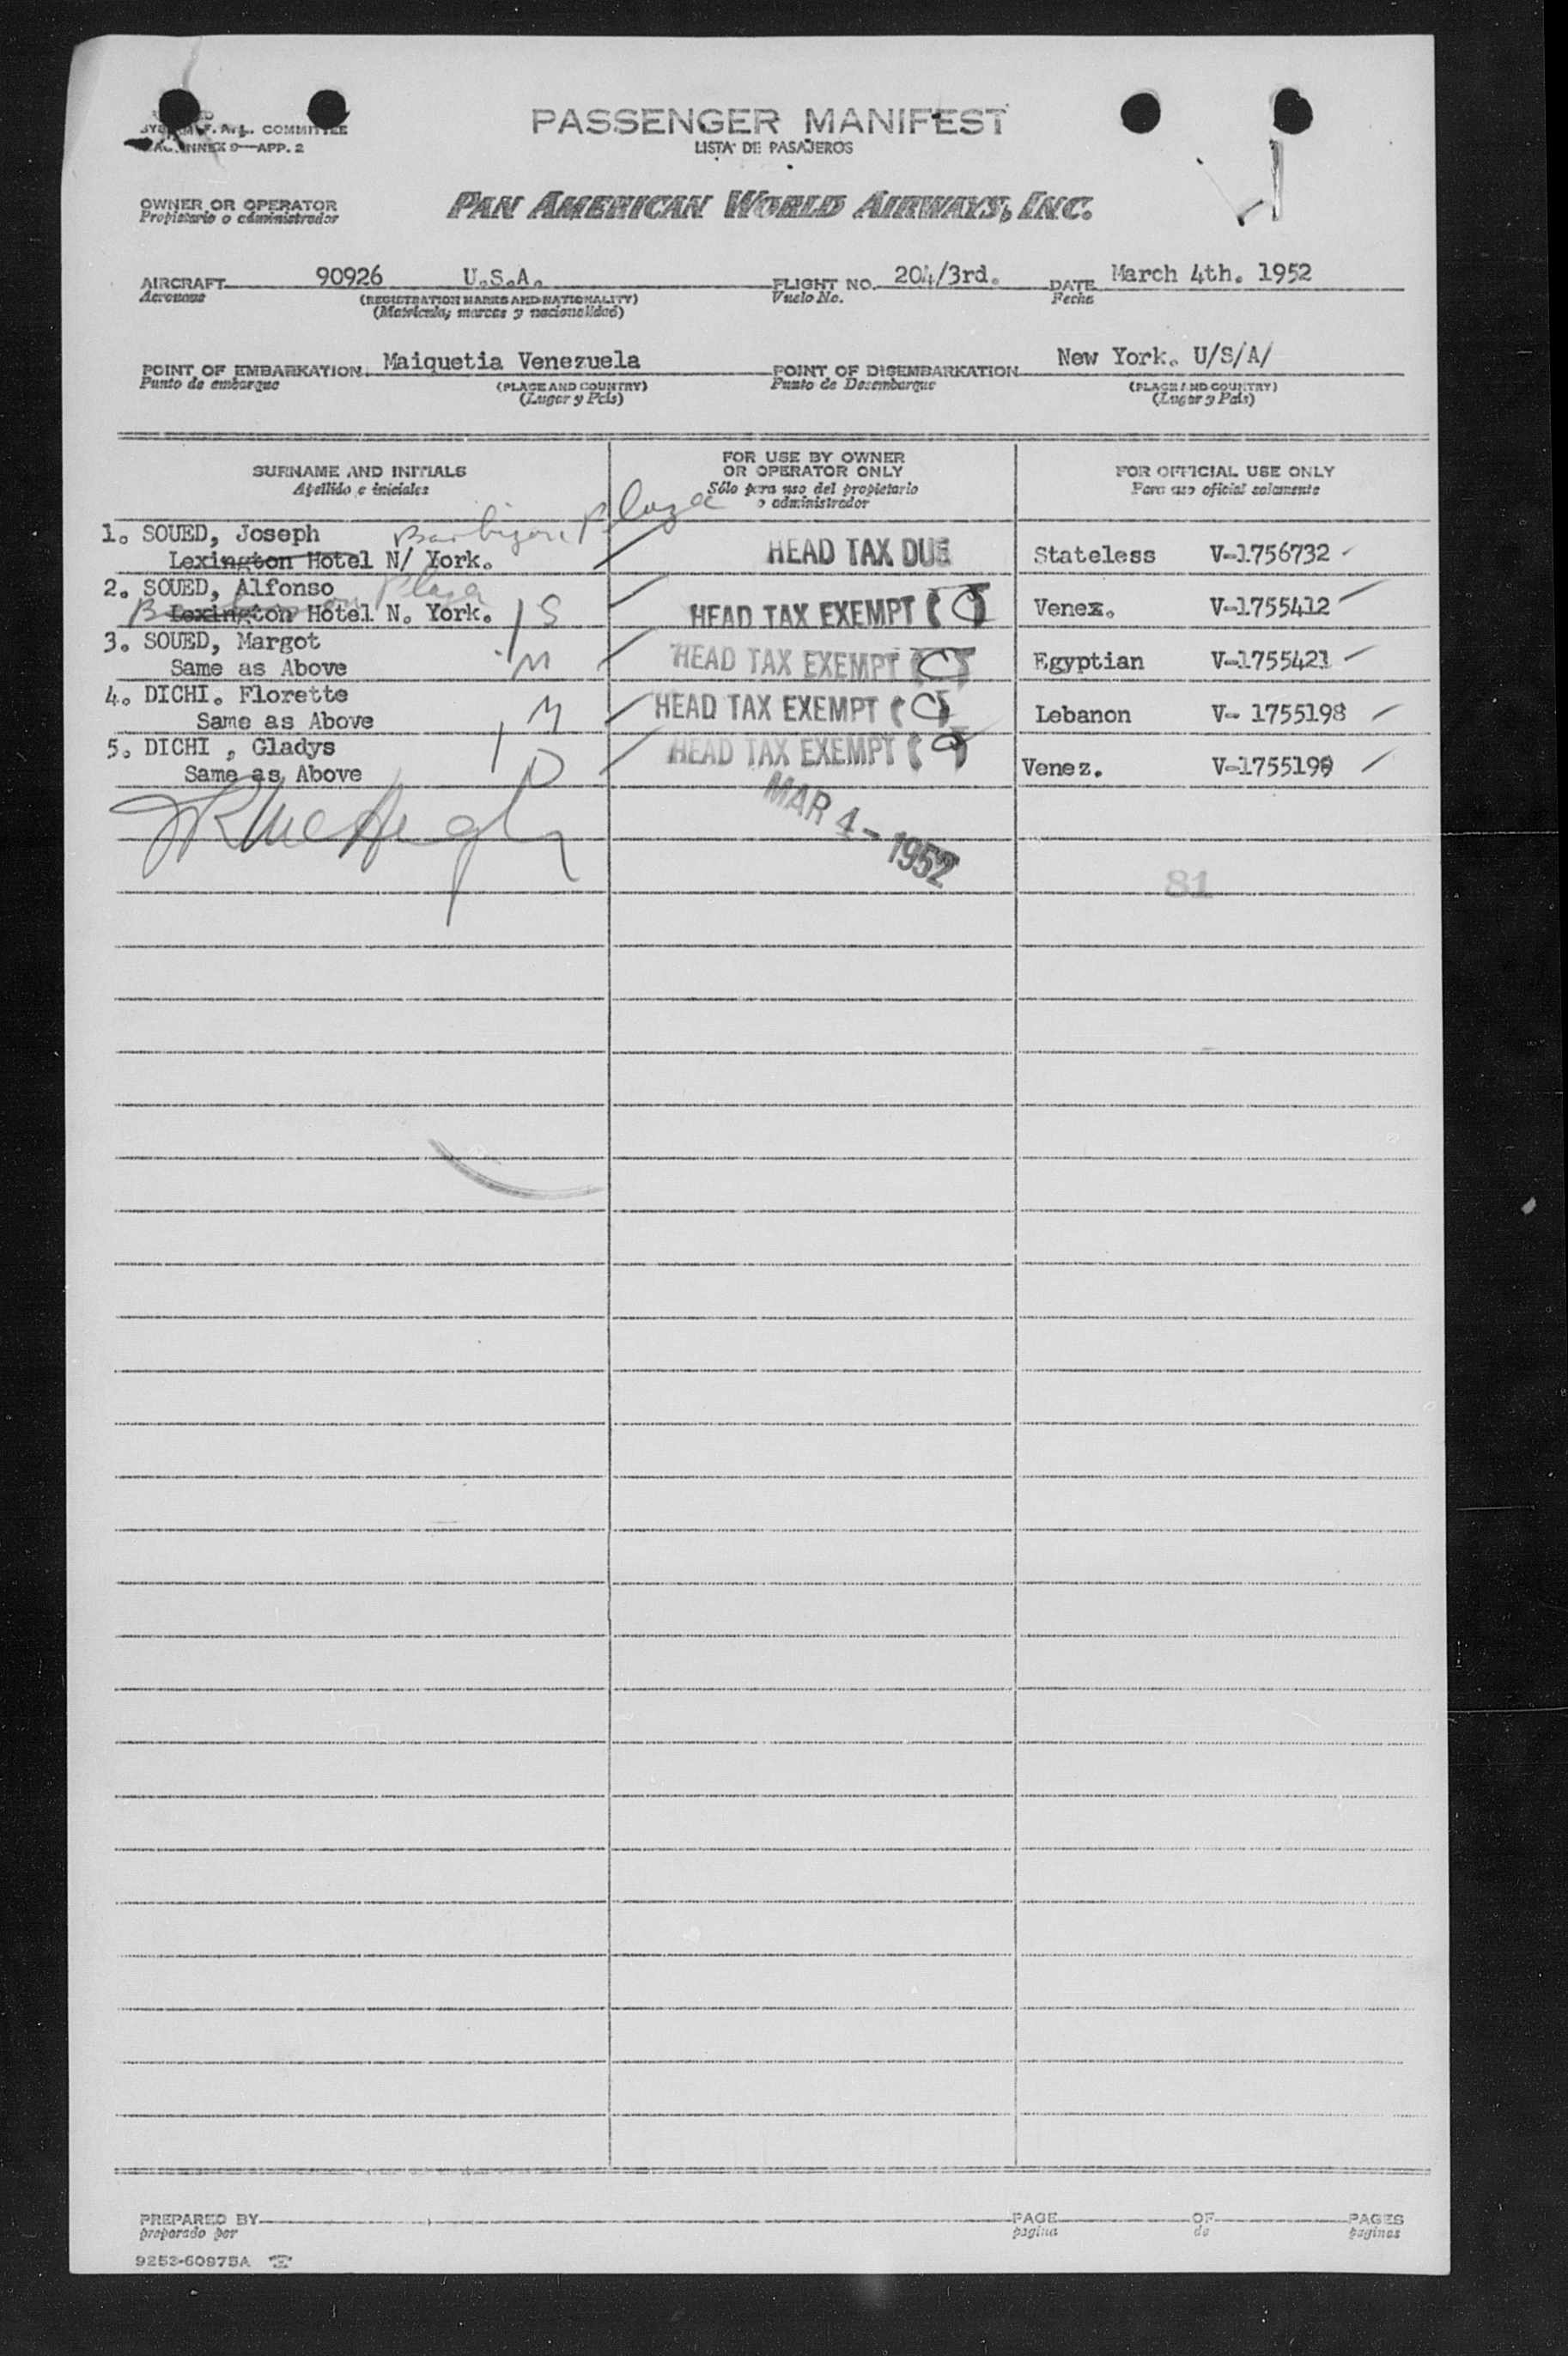 COMMITTEE
ANNEX 9—APP. 2
PASSENGER MANIFEST
LISTA DE PASAJEROS
OWNER OR OPERATOR
Propietario o administrador
PAN AMERICAN WORLD AIRWAYS, INC.
AIRCRAFT 90926 U.S.A. FLIGHT NO. 204/3rd. DATE March 4th. 1952
Aeronave (REGISTRATION MARKS AND NATIONALITY) Vuelo No. Fecha
(Matricula, marcas y nacionalidad)
POINT OF EMBARKATION. Maiquetia Venezuela POINT OF DISEMBARKATION New York. U/S/A/
Punto de embarque (PLACE AND COUNTRY) Punto de Desembarque (PLACE AND COUNTRY)
(Lugar y Pais) (Lugar y Pais)
SURNAME AND INITIALS
Apellido e iniciales
FOR USE BY OWNER
OR OPERATOR ONLY
Sólo para uso del propietario
o administrador
FOR OFFICIAL USE ONLY
Para uso oficial solamente
1. SOUED, Joseph Barbizon Plaza
Lexington Hotel N/ York. HEAD TAX DUE Stateless V-1756732
2. SOUED, Alfonso Plaza
Lexington Hotel N. York. S HEAD TAX EXEMPT Venez. V-1755412
3. SOUED, Margot
Same as Above M HEAD TAX EXEMPT Egyptian V-1755421
4. DICHI. Florette
Same as Above M HEAD TAX EXEMPT Lebanon V- 1755198
5. DICHI , Gladys
Same as Above D HEAD TAX EXEMPT Venez. V-1755199
MAR 4 - 1952
81
PREPARED BY PAGE OF PAGES
preparado por pagina de paginas
9253-60975A